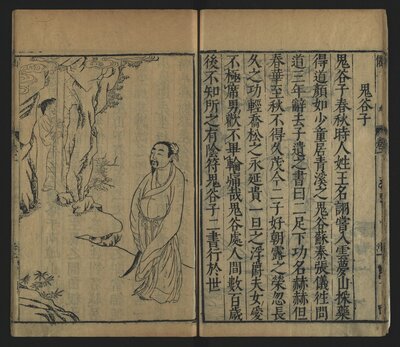 鬼谷子
鬼谷子春秋時人姓王名詡嘗入雲夢山採藥
得道顏如少童居青溪之鬼谷蘇秦張儀徃問
道三年辭去子遺之書曰二足下功名赫赫但
春華至秋不得久茂今二子好朝露之榮忽長
久之功輕喬松之永延貴一旦之浮爵夫女愛
不極席男歡不畢輪痛哉鬼谷處人間數百歲
後不知所之有陰符鬼谷子二書行於世